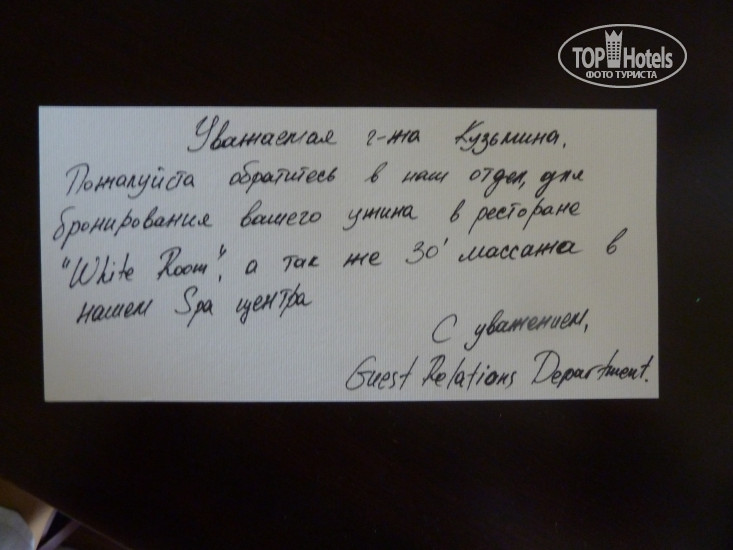 TOP Hotels
ФОТО ТУРИСТА
Уважаемая г-жа Кузьмина,
Пожалуйста обратитесь в наш отдел, для
бронирования вашего ужина в ресторане
"White Room", а так же 30' массажа в
нашем Spa центра
С уважением,
Guest Relations Department.